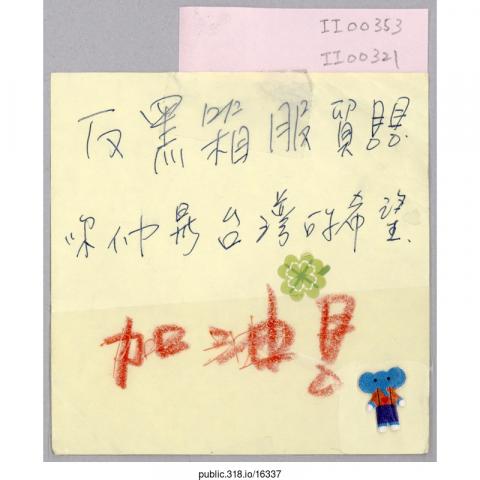 II00353
II00321
反黑箱服貿
是台灣的希望
加油!
public.318.io/16337